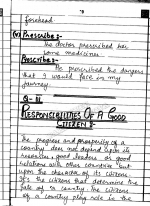 forehead.
(v) Prescribe:-
The doctor prescribed her
some medicines.
Proscribe:-
He proscribed the dangers
that I would face in my
journey.
Q-III
RESPONSIBILITIES OF A GOOD
CITIZEN:-
The progress and prosperity of a
country does not depend upon its
resources, good leaders or good
relations with other countries but
upon the character of its citizens.
It's the citizens that determine the
fate of a country. The citizens
of a country play role in the